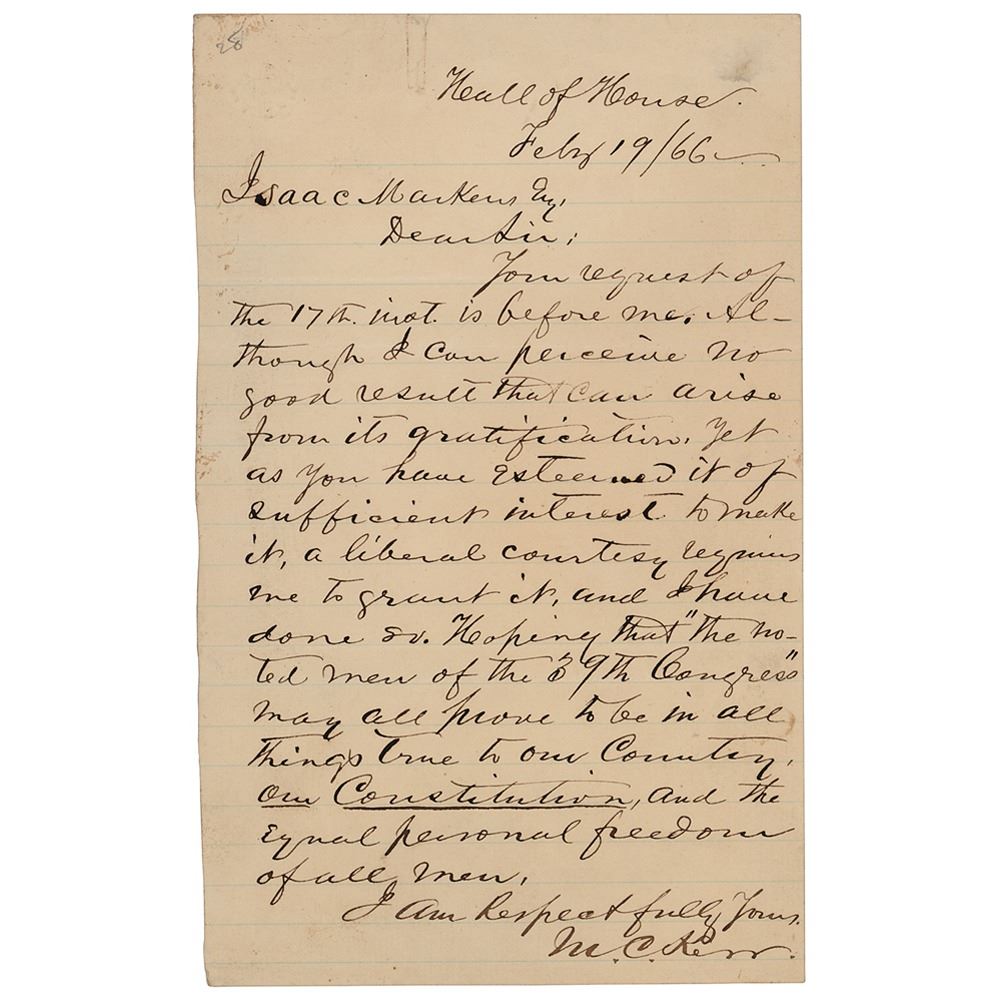 28
Hall of House.
Feby 19/66
Isaac Markens Esq,
Dear Sir;
Your request of
the 17th. inst. is before me. Al-
though I can perceive no
good result that can arise
from its gratification, yet
as you have esteemed it of
sufficient interest to make
it, a liberal courtesy requires
me to grant it, and I have
done so. Hoping that "the no-
ted men of the 39th Congress"
may all prove to be in all
things true to our Country,
our Constitution, and the
equal personal freedom
of all men,
I am Respectfully, Yours.
M. C. Kerr.